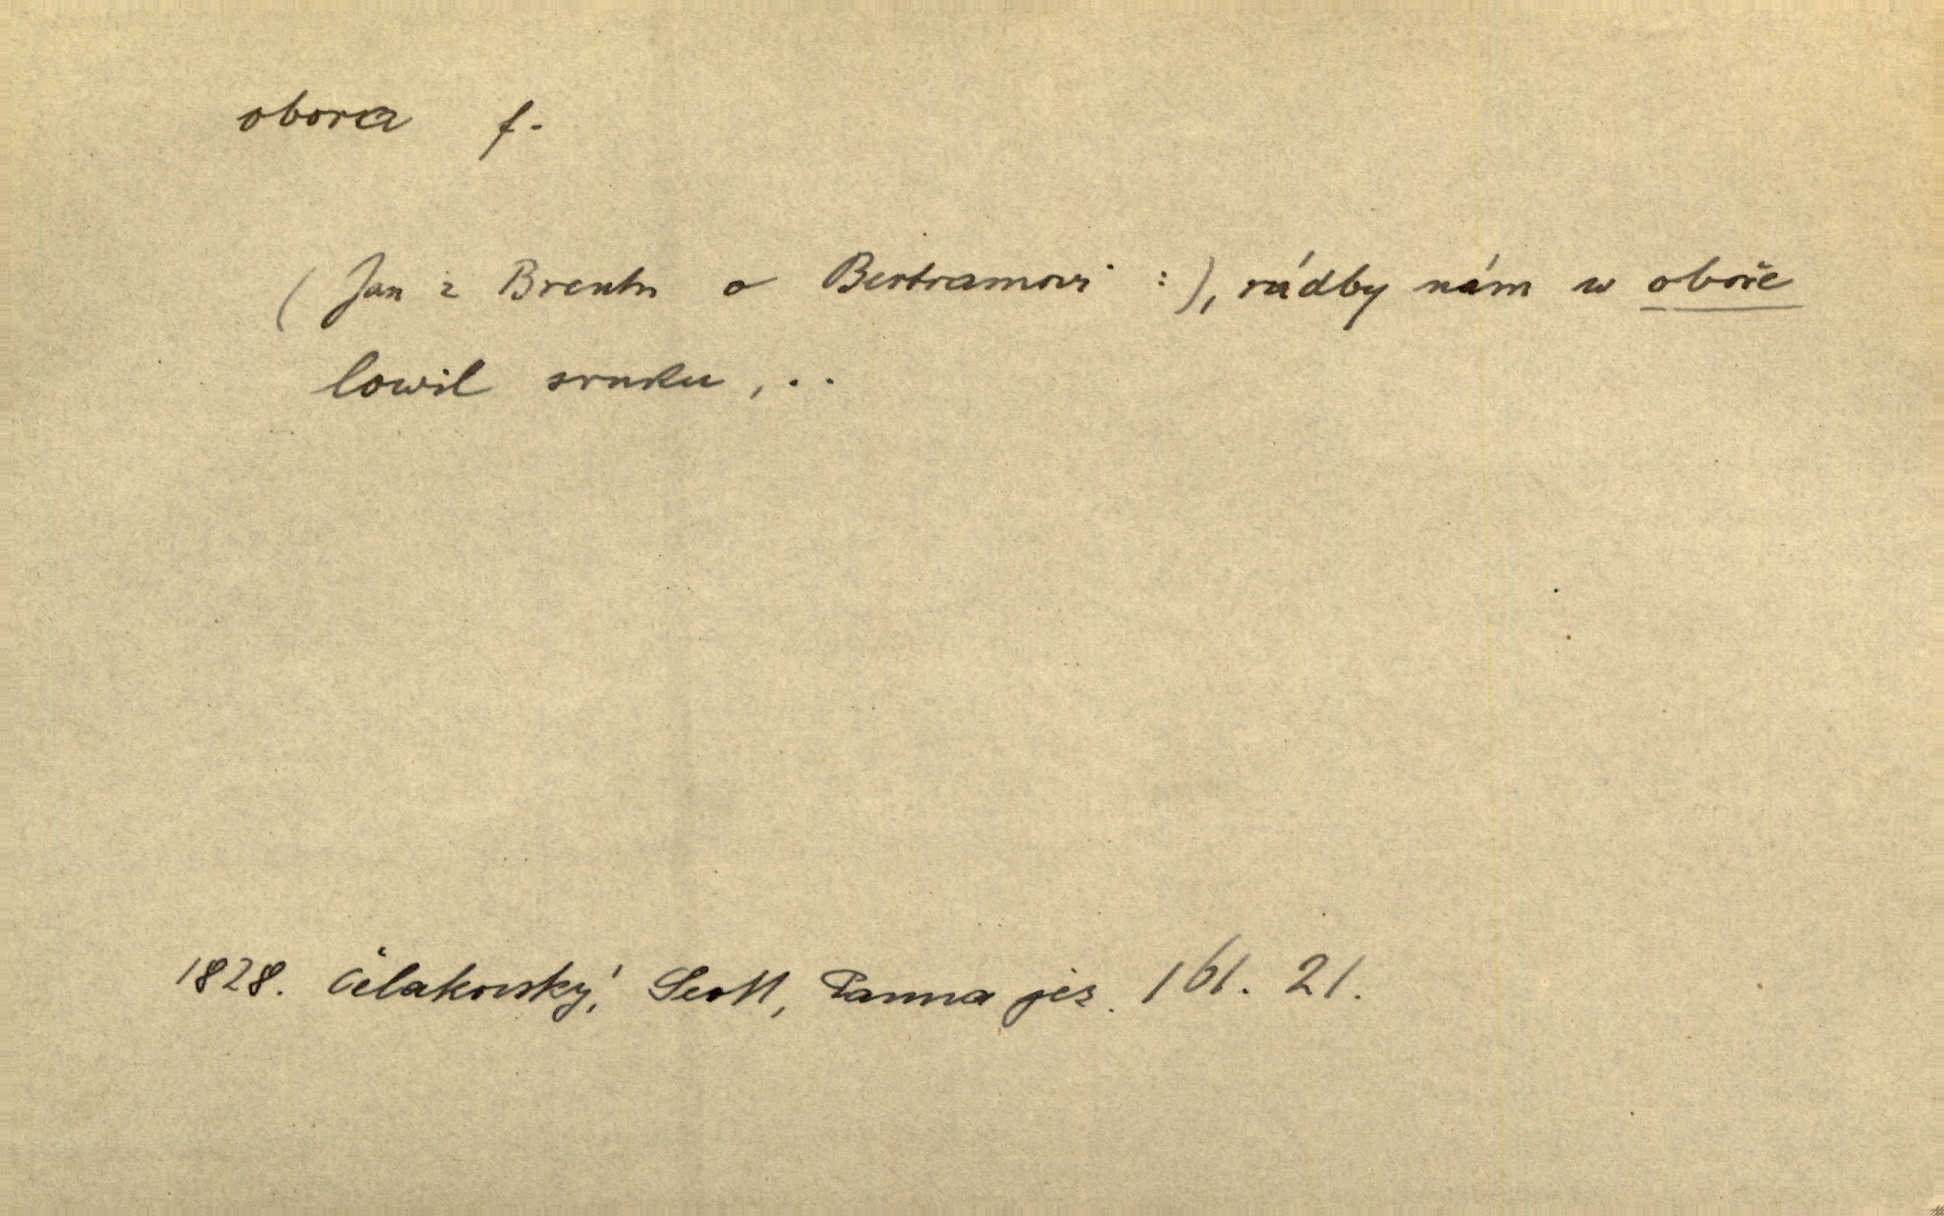 obora f.
( Jan z Brentu o Bertramovi : ), rádby nám w oboře
lowil srnku , . .
1828. Čelakovský, Scott, Panna jez. 161. 21.